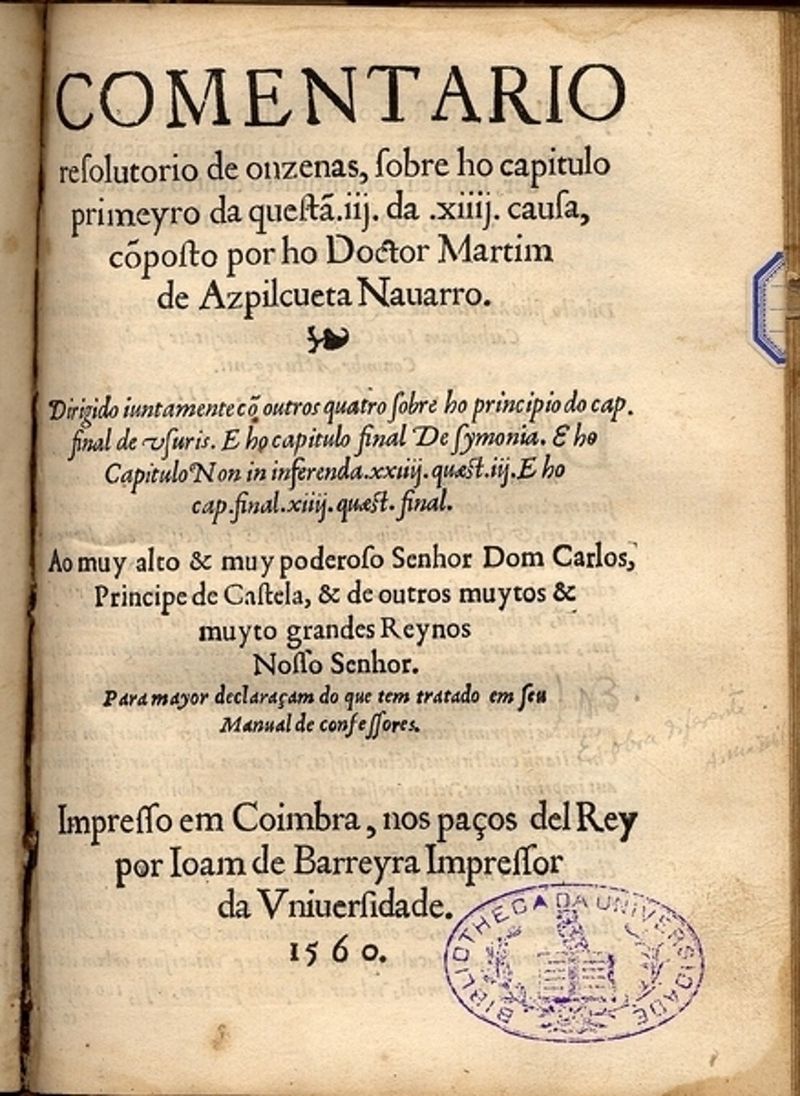 COMENTARIO
reſolutorio de onzenas, ſobre ho capitulo
primeyro da queſtã.iij. da .xiiij. cauſa,
cõpoſto por ho Doctor Martim
de Azpilcueta Nauarro.
Dirigido iuntamente cõ outros quatro ſobre ho principio do cap.
final de vſuris. E ho capitulo final De ſymonia. E ho
Capitulo Non in inferenda.xxiiij. quæſt.iij. E ho
cap.final.xiiij. quæſt. final.
Ao muy alto & muy poderoſo Senhor Dom Carlos,
Principe de Caſtela, & de outros muytos &
muyto grandes Reynos
Noſſo Senhor.
Para mayor declaraçam do que tem tratado em ſeu
Manual de confeſſores.
Impreſſo em Coimbra, nos paços del Rey
por Ioam de Barreyra Impreſſor
da Vniuerſidade.
1560.
BIBLIOTHECA DA UNIVERSIDADE